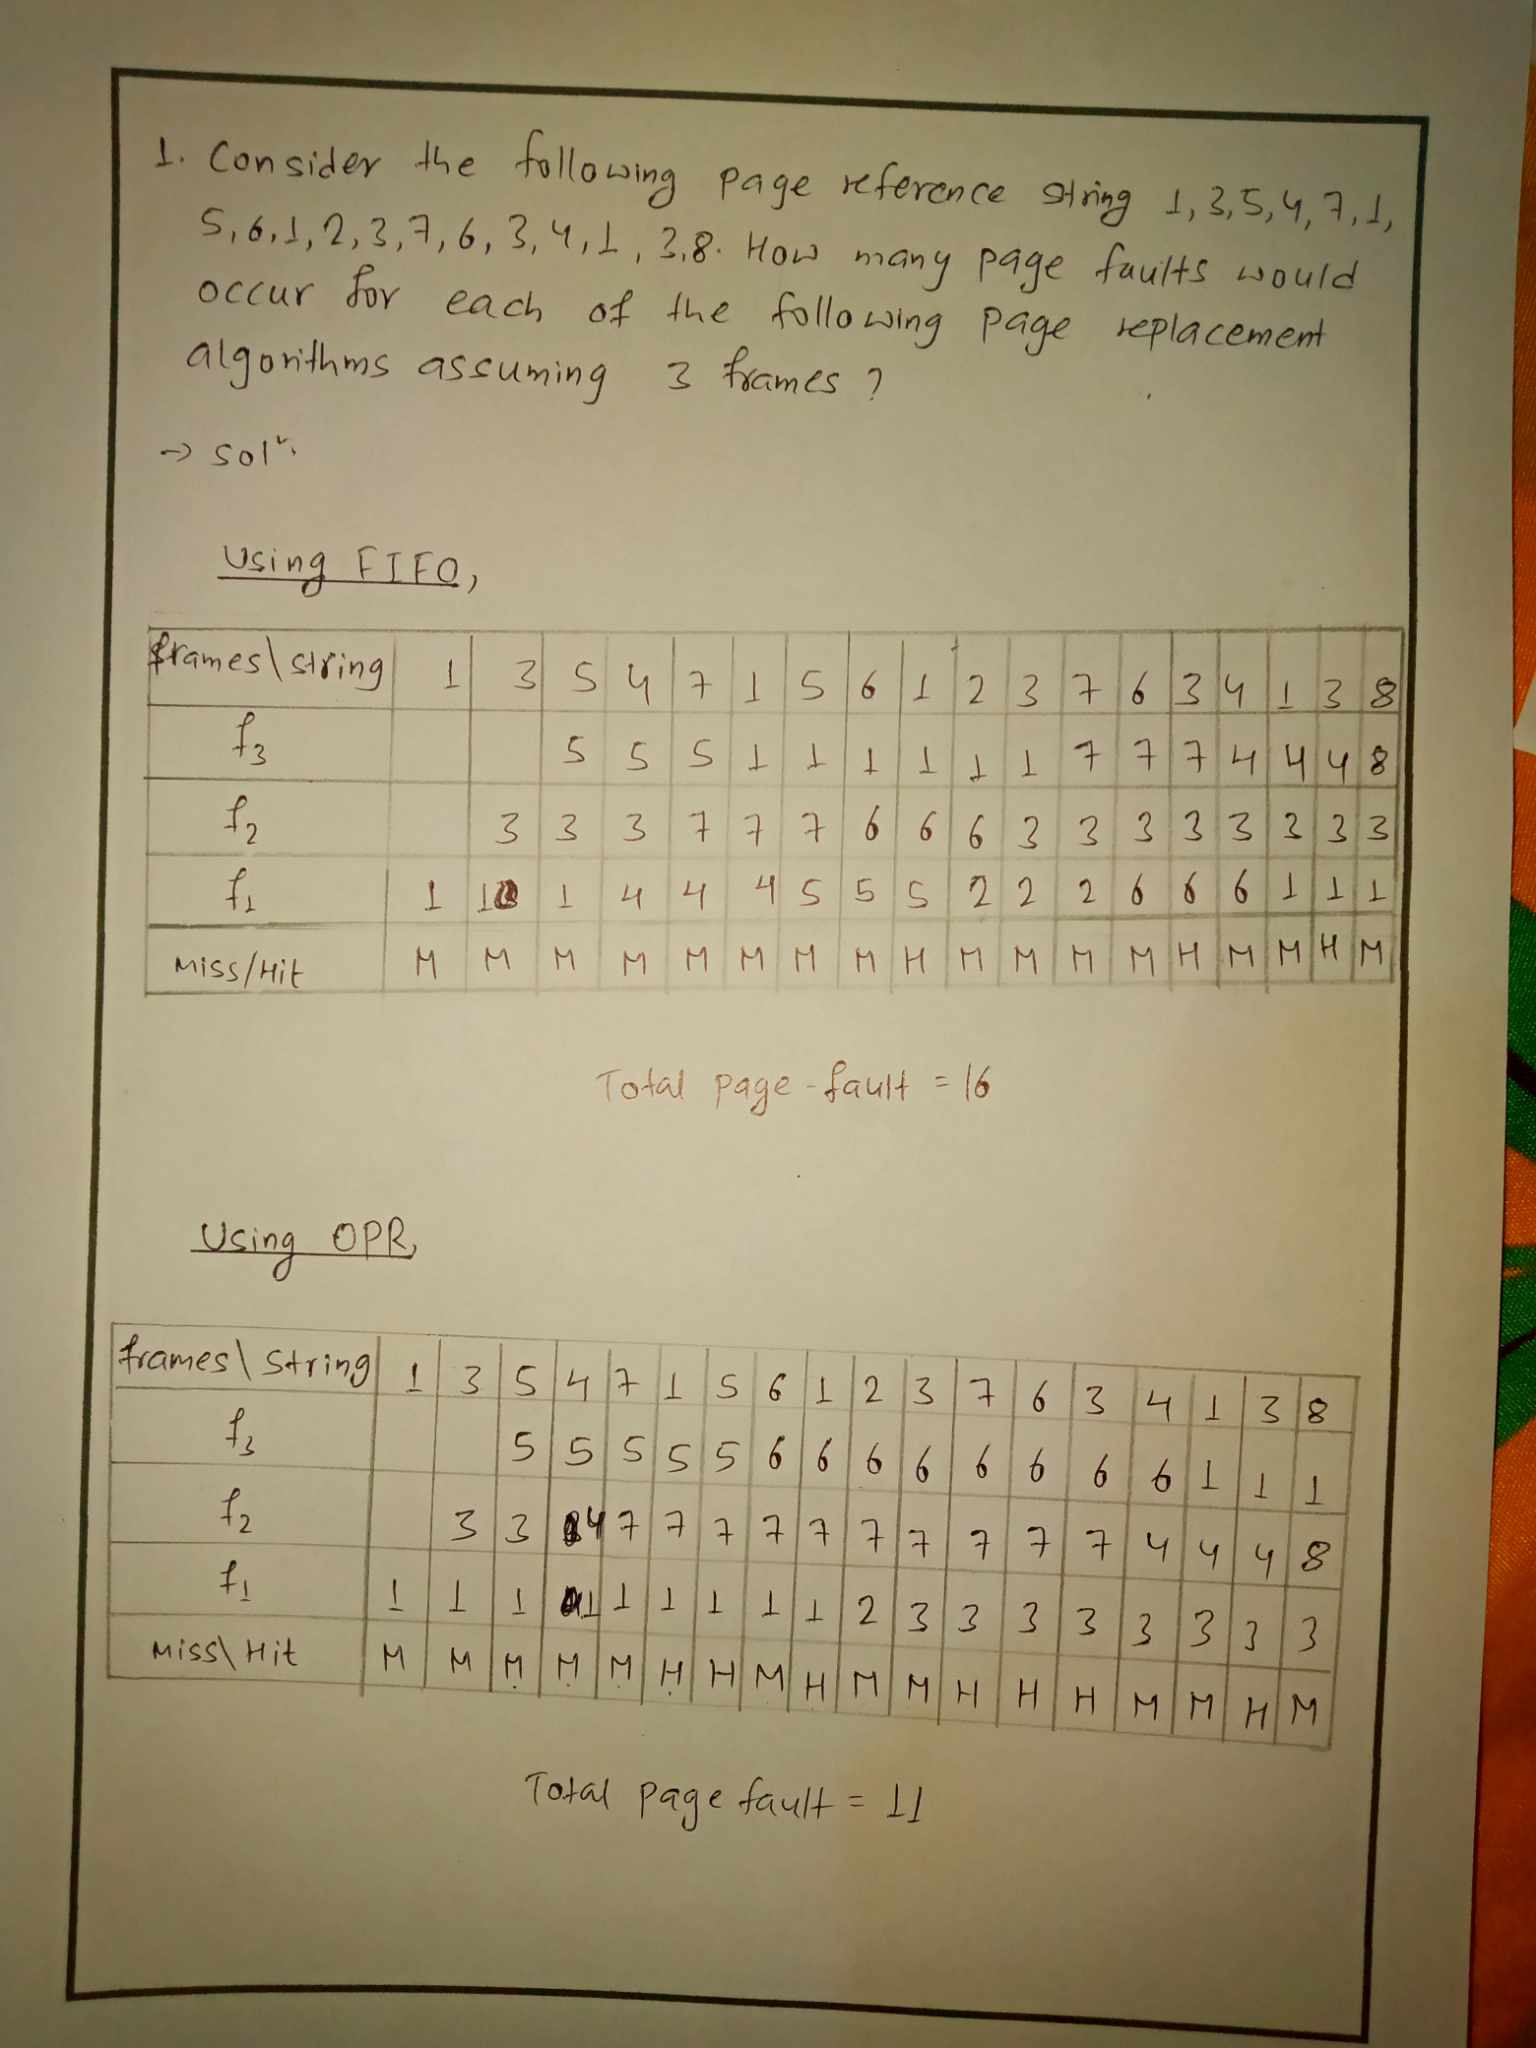 1. Consider the following page reference string 1,3,5,4,7,1,
5,6,1,2,3,7,6,3,4,1,3,8. How many page faults would
occur for each of the following page replacement
algorithms assuming 3 frames ?
→ solⁿ.
Using FIFO,
frames\string 1 3 5 4 7 1 5 6 1 2 3 7 6 3 4 1 3 8
f3 5 5 5 1 1 1 1 1 1 7 7 7 4 4 4 8
f2 3 3 3 7 7 7 6 6 6 3 3 3 3 3 3 3 3
f1 1 1 1 4 4 4 5 5 5 2 2 2 6 6 6 1 1 1
Miss/Hit M M M M M M M M H M M M M H M M H M
Total page-fault = 16
Using OPR,
frames\String 1 3 5 4 7 1 5 6 1 2 3 7 6 3 4 1 3 8
f3 5 5 5 5 5 6 6 6 6 6 6 6 6 1 1 1
f2 3 3 4 7 7 7 7 7 7 7 7 7 7 4 4 4 8
f1 1 1 1 1 1 1 1 1 1 2 3 3 3 3 3 3 3 3
Miss\Hit M M M M M H H M H M M H H H M M H M
Total page fault = 11